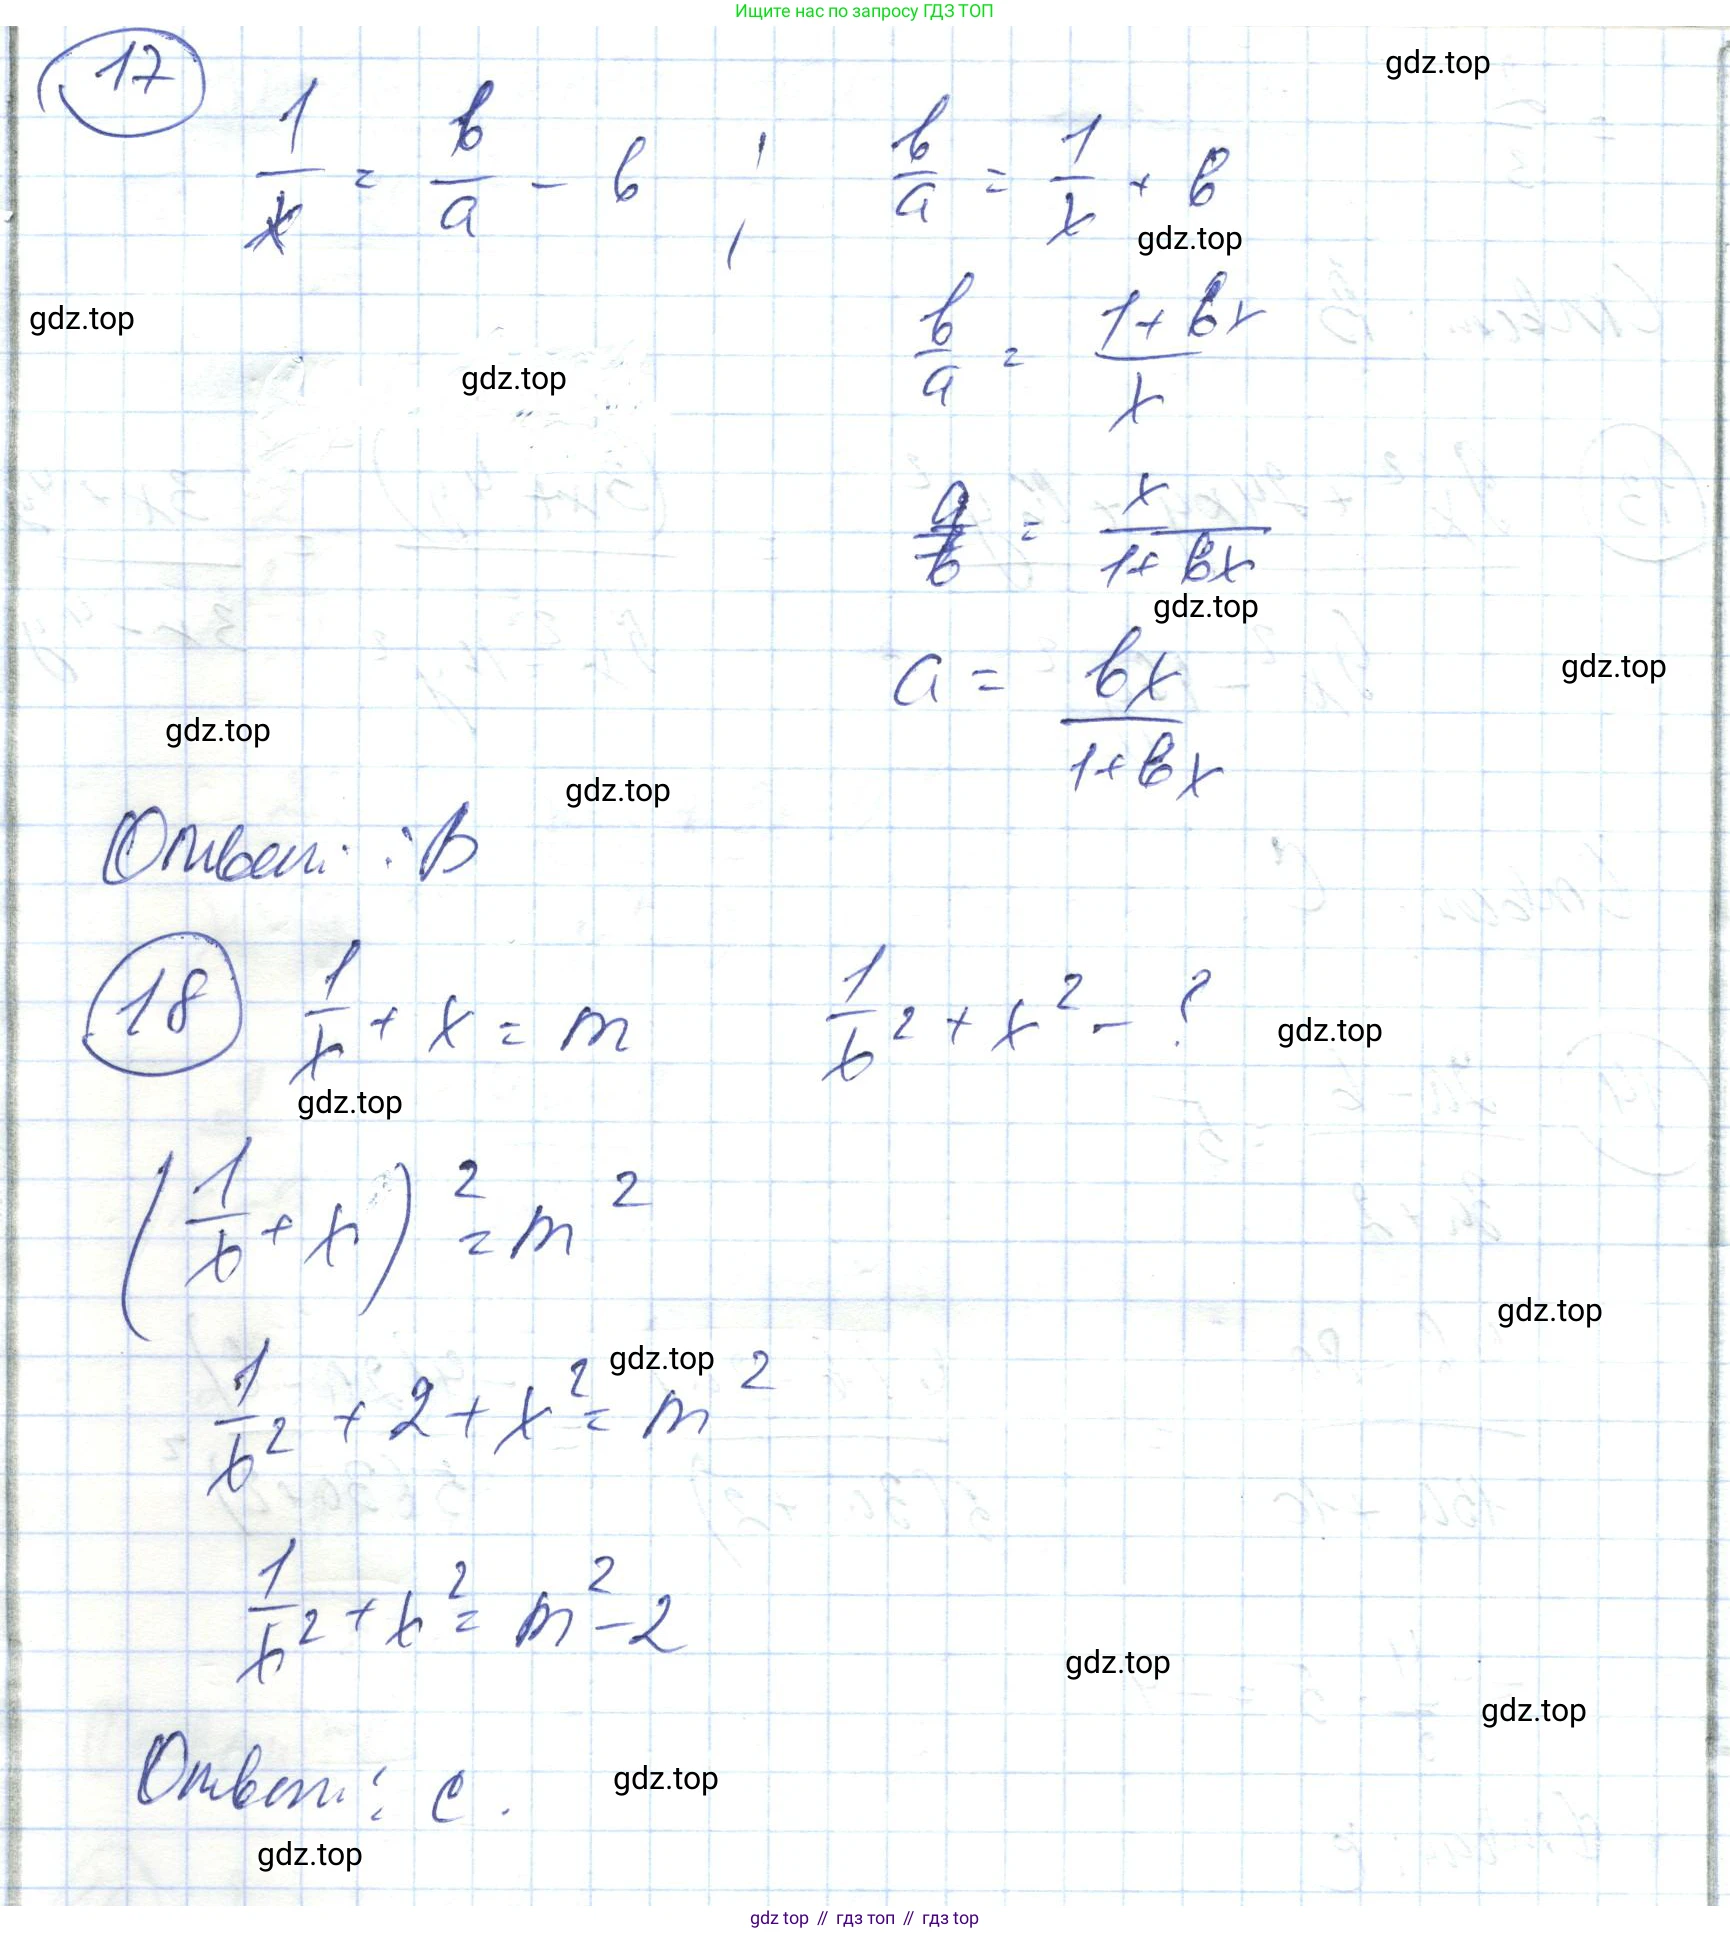 Ищите нас по запросу ГДЗ ТОП
17
gdz.top
1/x = b/a - b ; b/a = 1/x + b
gdz.top
gdz.top
b/a = (1+bx)/x
gdz.top
a/b = x/(1+bx)
gdz.top
a = bx/(1+bx)
gdz.top
gdz.top
gdz.top
Ответ: B
18 1/x + x = m 1/x² + x² - ?
gdz.top
gdz.top
(1/x + x)² = m²
gdz.top
gdz.top
1/x² + 2 + x² = m²
1/x² + x² = m² - 2
gdz.top
gdz.top
Ответ: C.
gdz.top
gdz.top
gdz top // гдз топ // гдз top